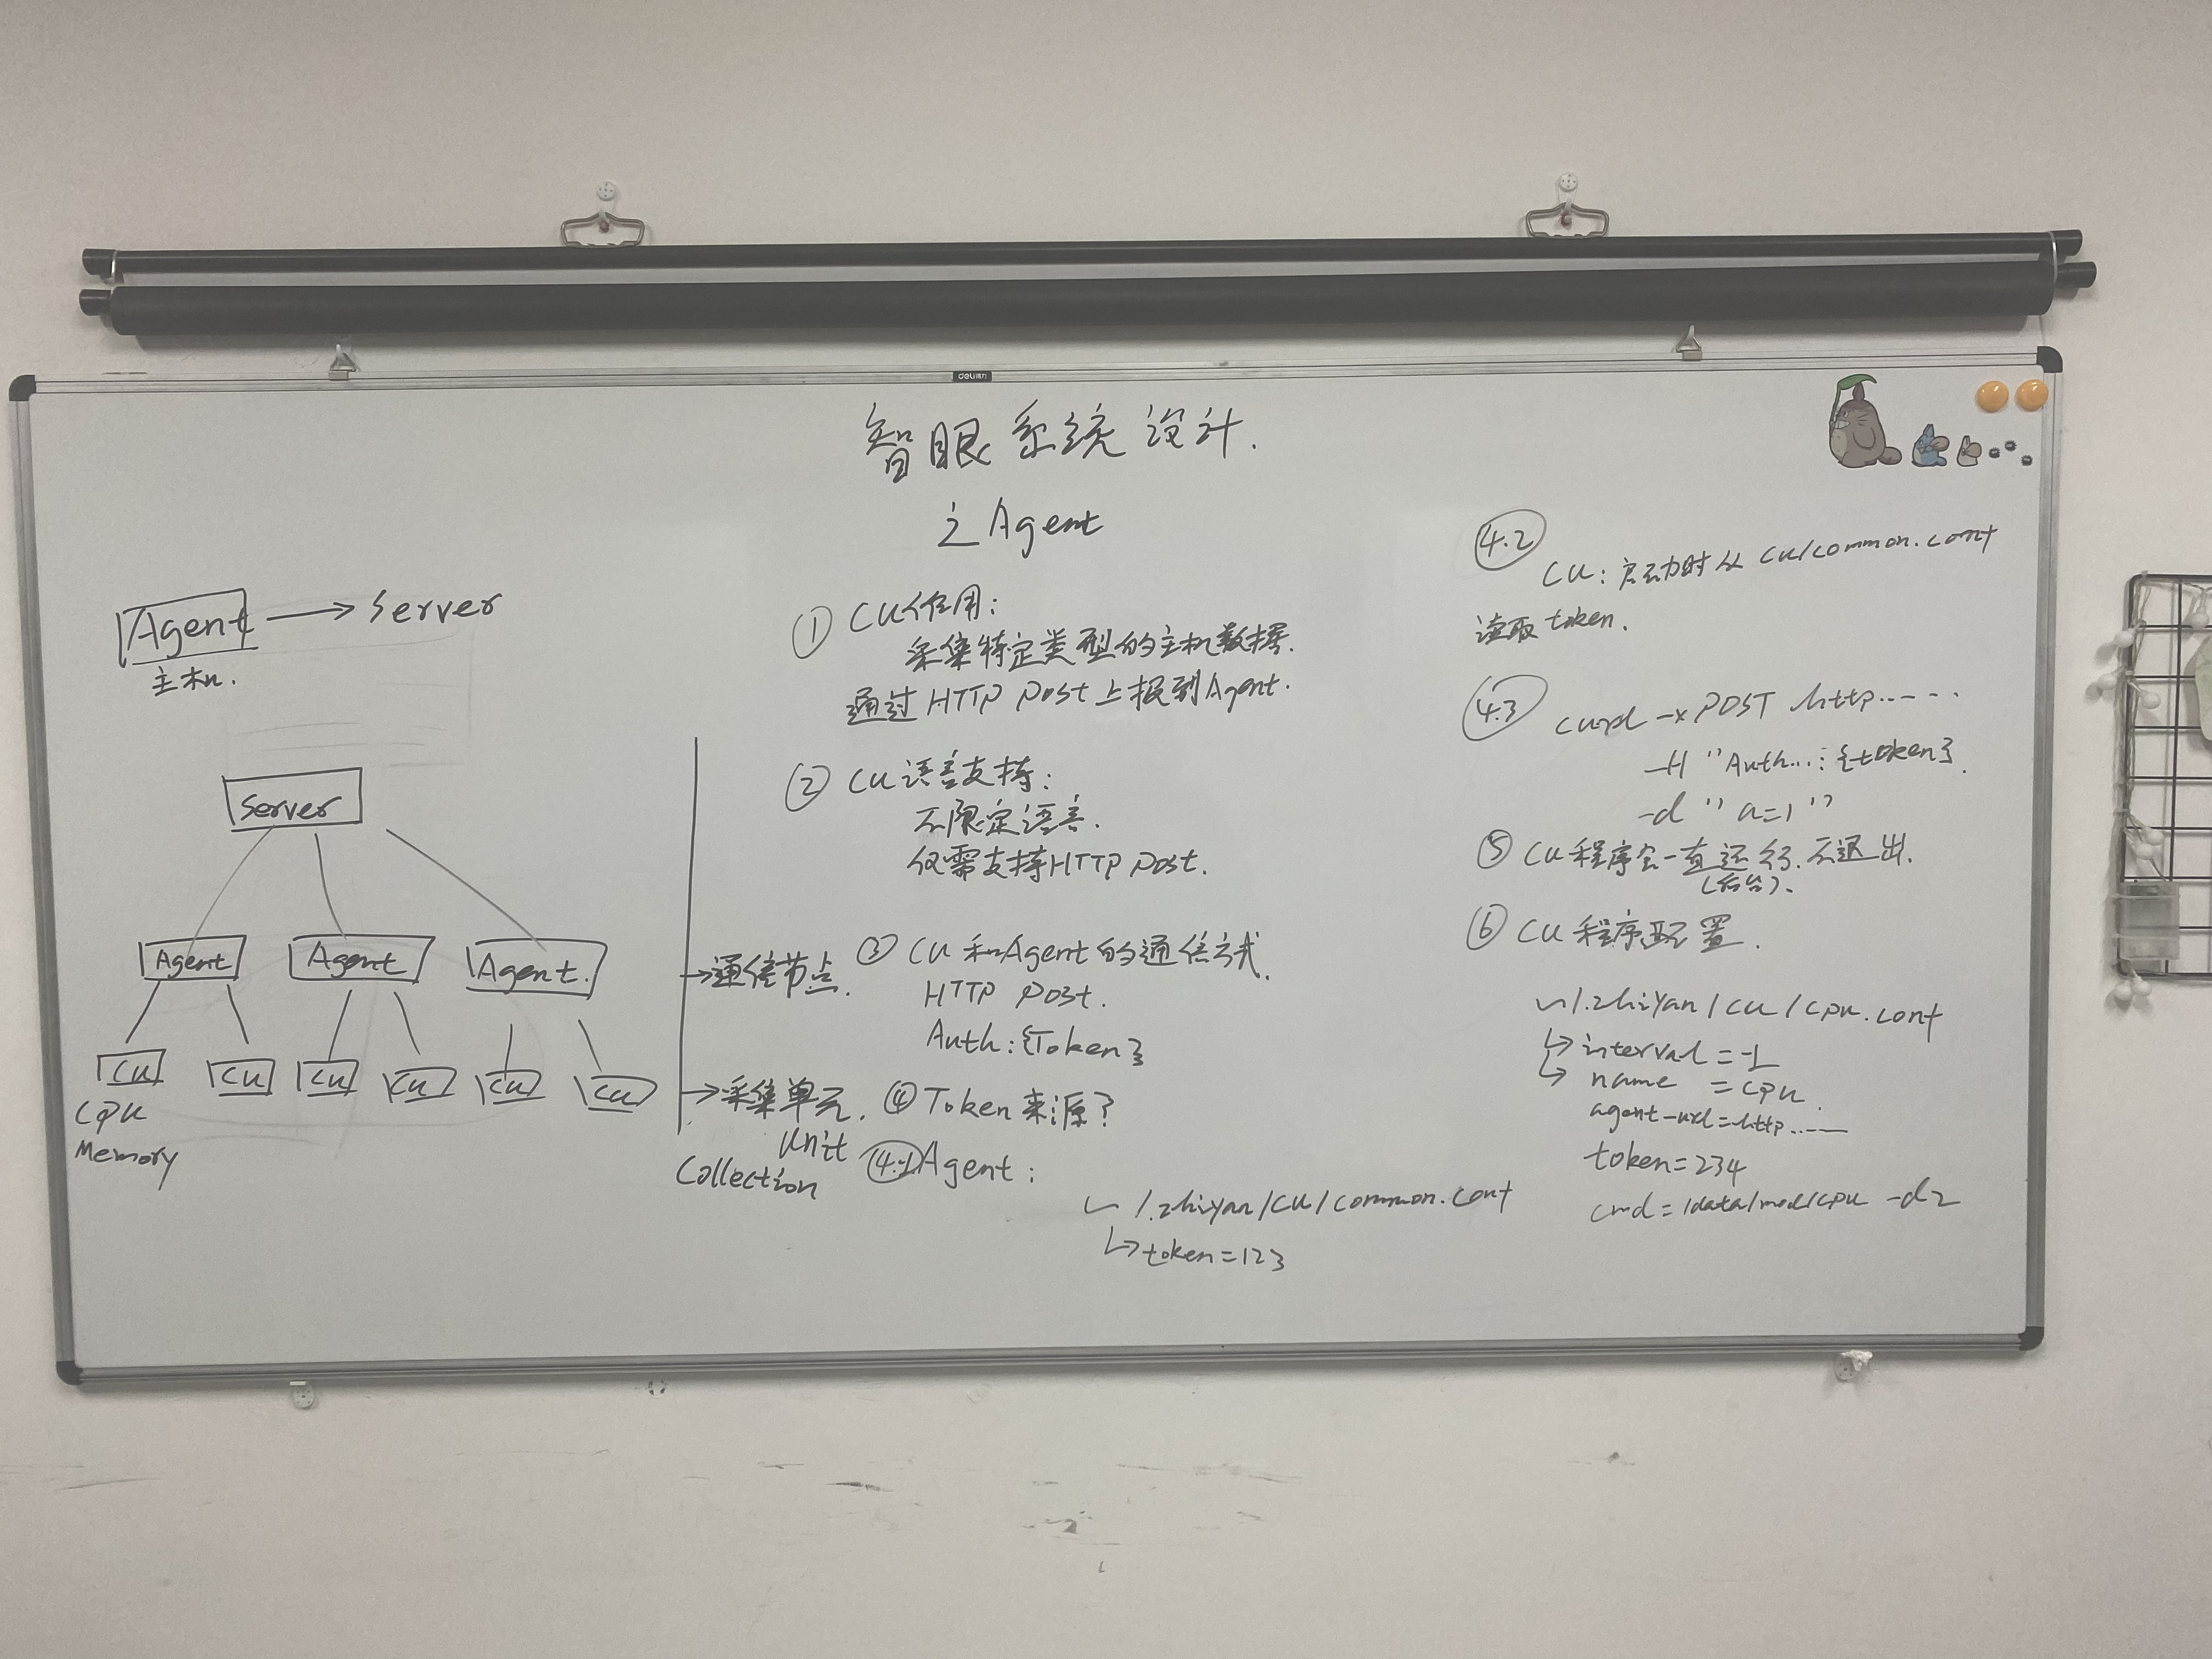 deli得力
智眼系统设计.
之Agent
Agent → Server
主机.
Server
Agent Agent Agent.
CU CU CU CU CU CU
CPU
Memory
→通信节点.
→采集单元.
Unit
Collection
① CU作用:
采集特定类型的主机数据.
通过HTTP POST上报到Agent.
② CU语言支持:
不限定语言.
仅需支持HTTP POST.
③ CU和Agent的通信方式.
HTTP POST.
Auth:{Token}
④ Token来源?
4.1 Agent:
~/.zhiyan/CU/common.conf
↳token=123
4.2
CU: 启动时从 CU/common.conf
读取token.
4.3 curl -x POST http......
-H "Auth...: {token}.
-d "a=1"
⑤ CU程序会一直运行.不退出.
(后台).
⑥ CU程序配置.
~/.zhiyan/CU/cpu.conf
↳interval=1
↳name =cpu.
agent-url=http.....
token=234
cmd=/data/mod/cpu -d2